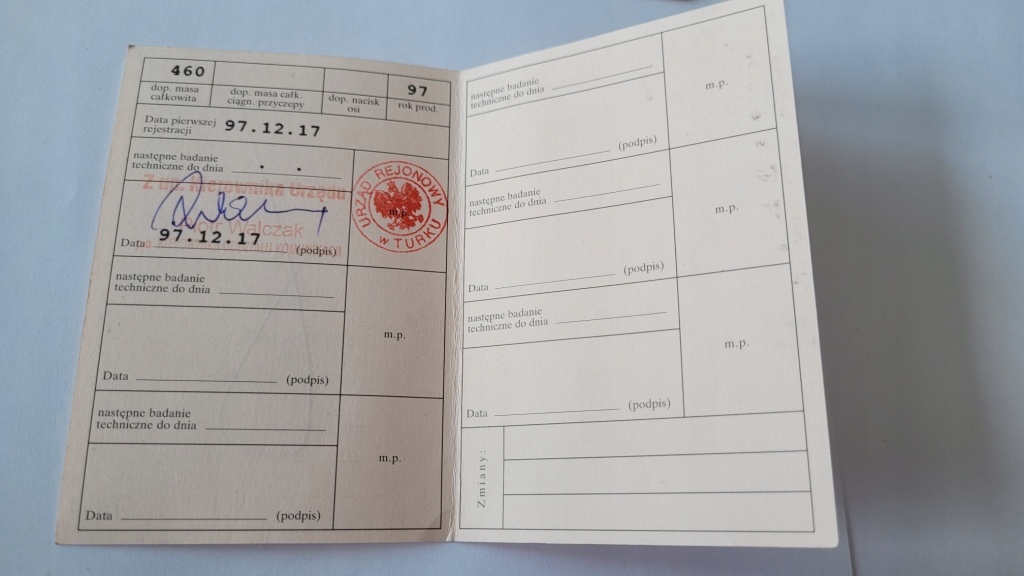 460
97
dop. masa całkowita
dop. masa całk. ciągn. przyczepy
dop. nacisk osi
rok prod.
Data pierwszej rejestracji 97.12.17
następne badanie techniczne do dnia . .
Z up. Kierownika Urzędu
Piotr Walczak
URZĄD REJONOWY w TURKU
m.p.
Data 97.12.17 (podpis)
następne badanie techniczne do dnia
m.p.
Data (podpis)
następne badanie techniczne do dnia
m.p.
Data (podpis)
następne badanie techniczne do dnia
m.p.
Data (podpis)
następne badanie techniczne do dnia
m.p.
Data (podpis)
następne badanie techniczne do dnia
m.p.
Data (podpis)
Zmiany: